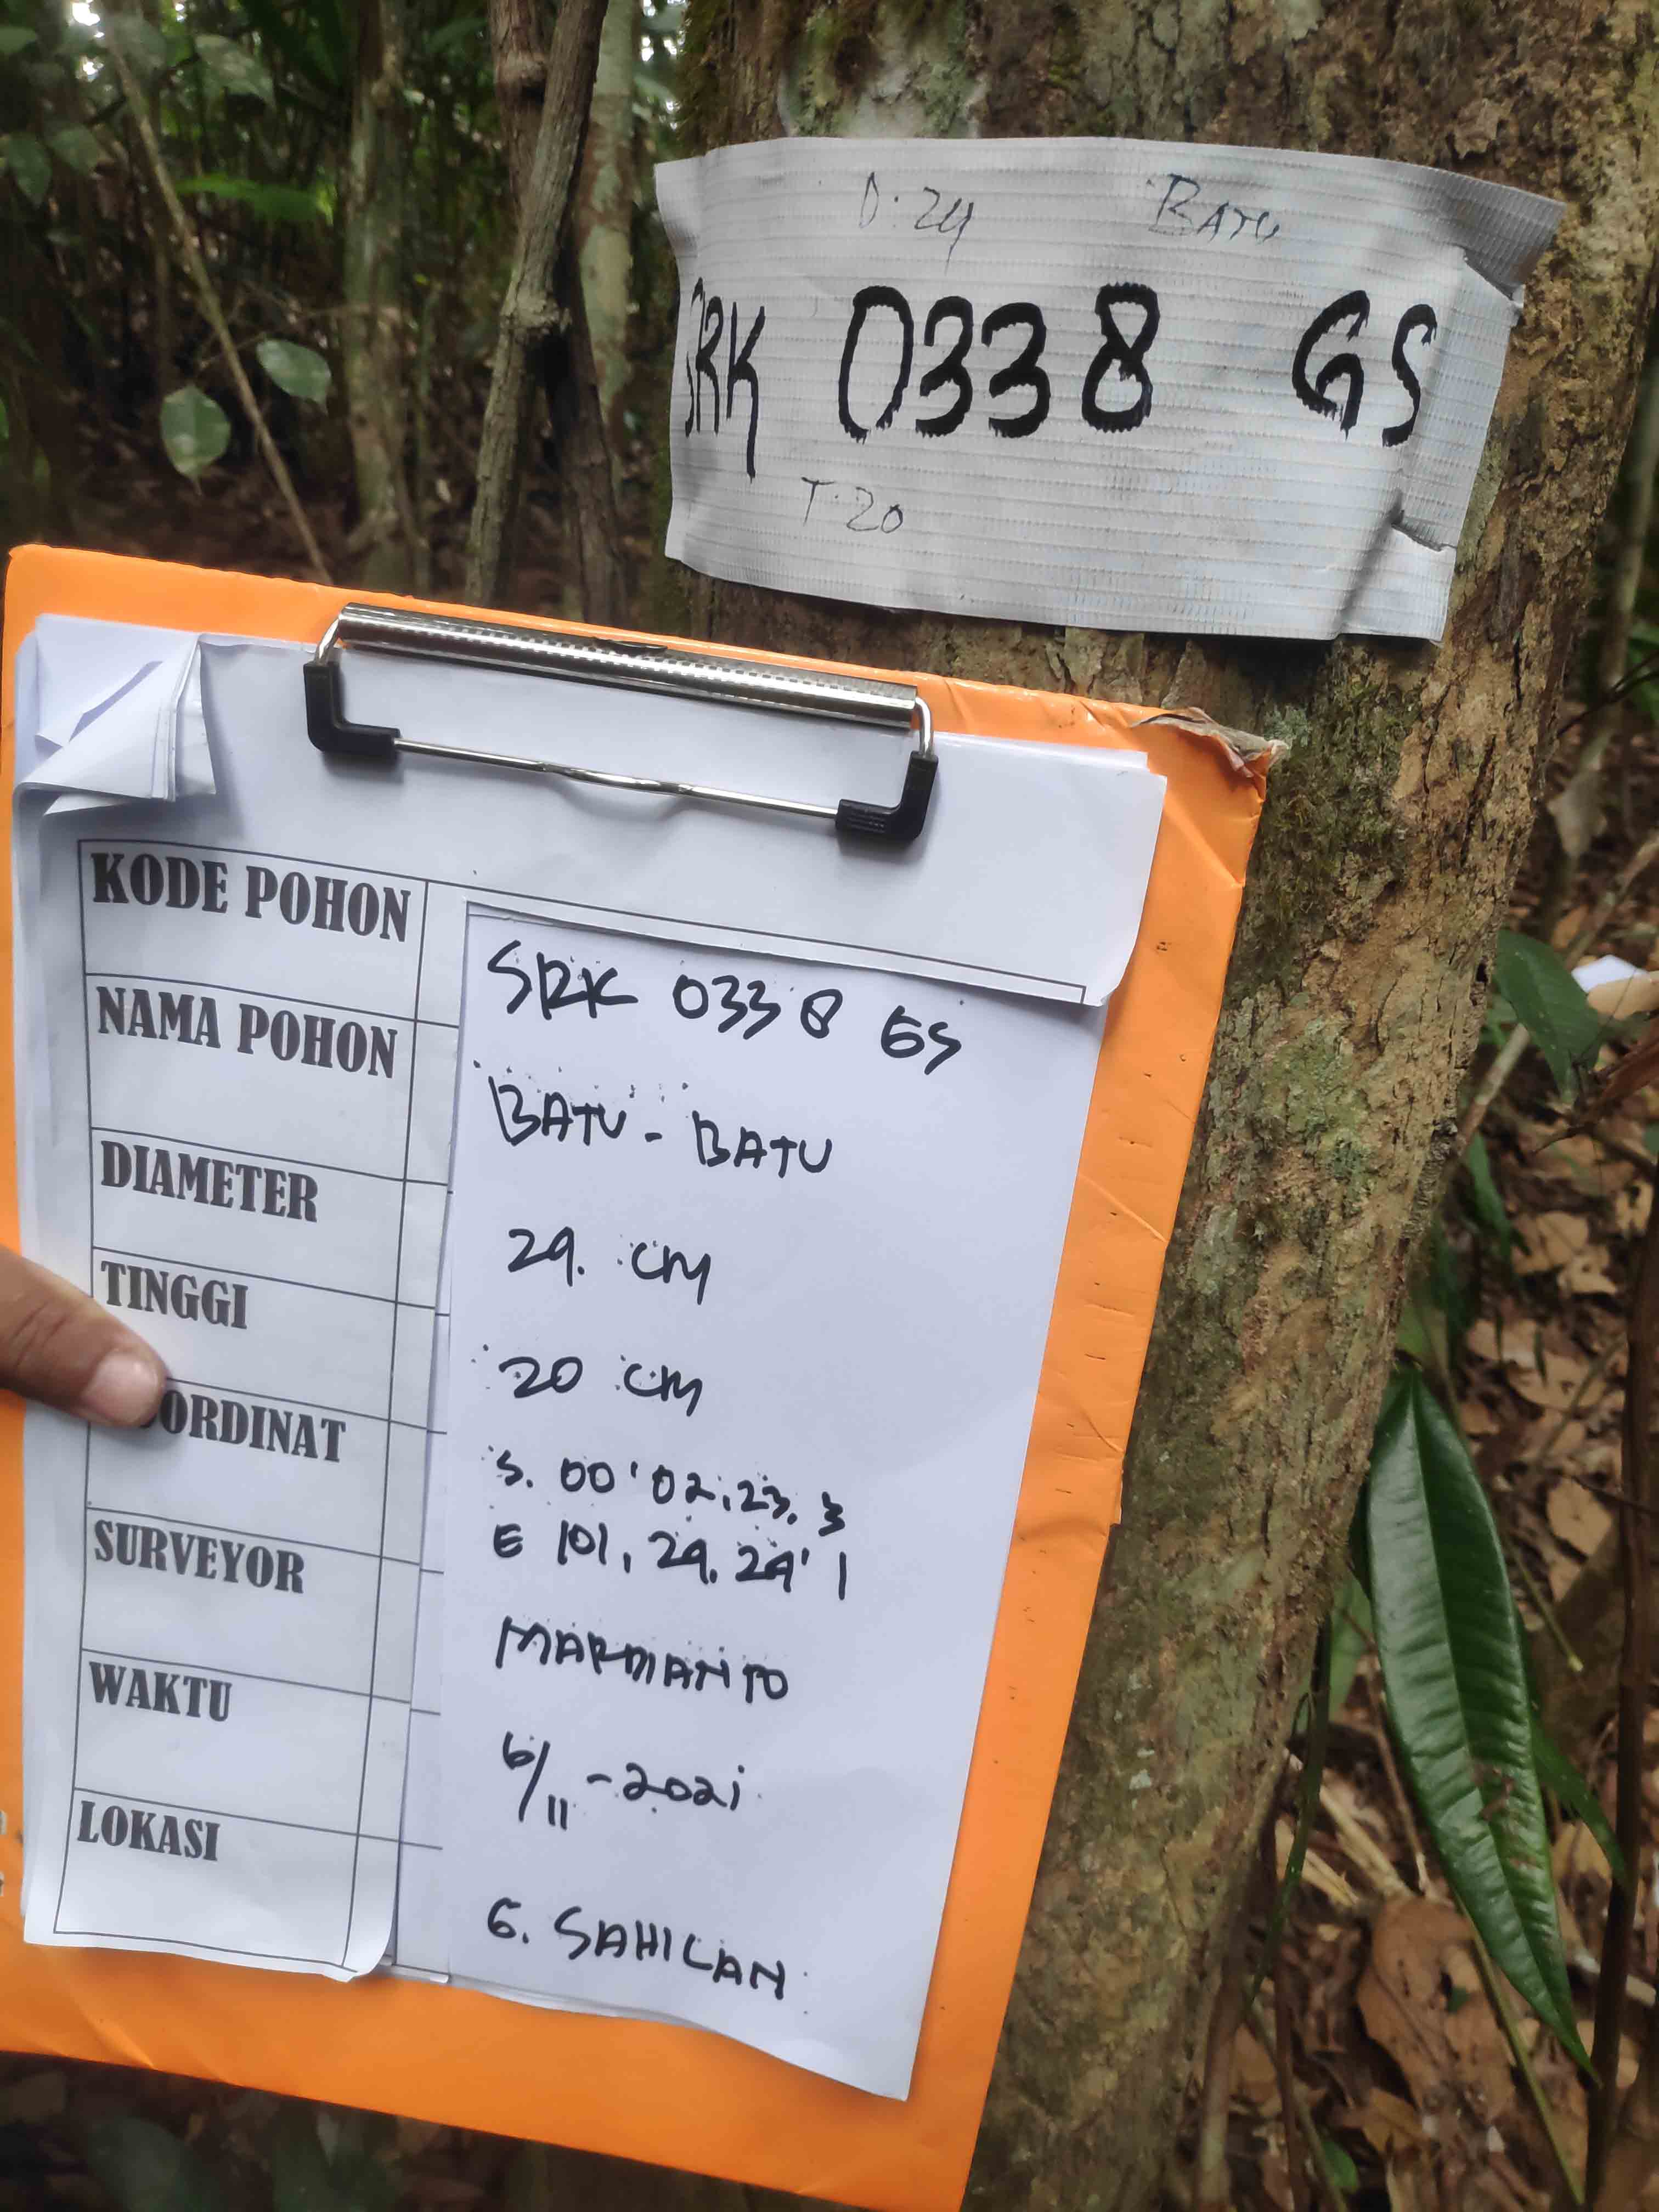 D. 29 BATU
SRK 0338 GS
T. 20
KODE POHON SRK 0338 GS
NAMA POHON BATU - BATU
DIAMETER 29. CM
TINGGI 20 CM
OORDINAT S. 00' 02. 23. 3
E 101, 29. 29' 1
SURVEYOR MARMANTO
WAKTU 6/11 - 2021
LOKASI G. SAHILAN